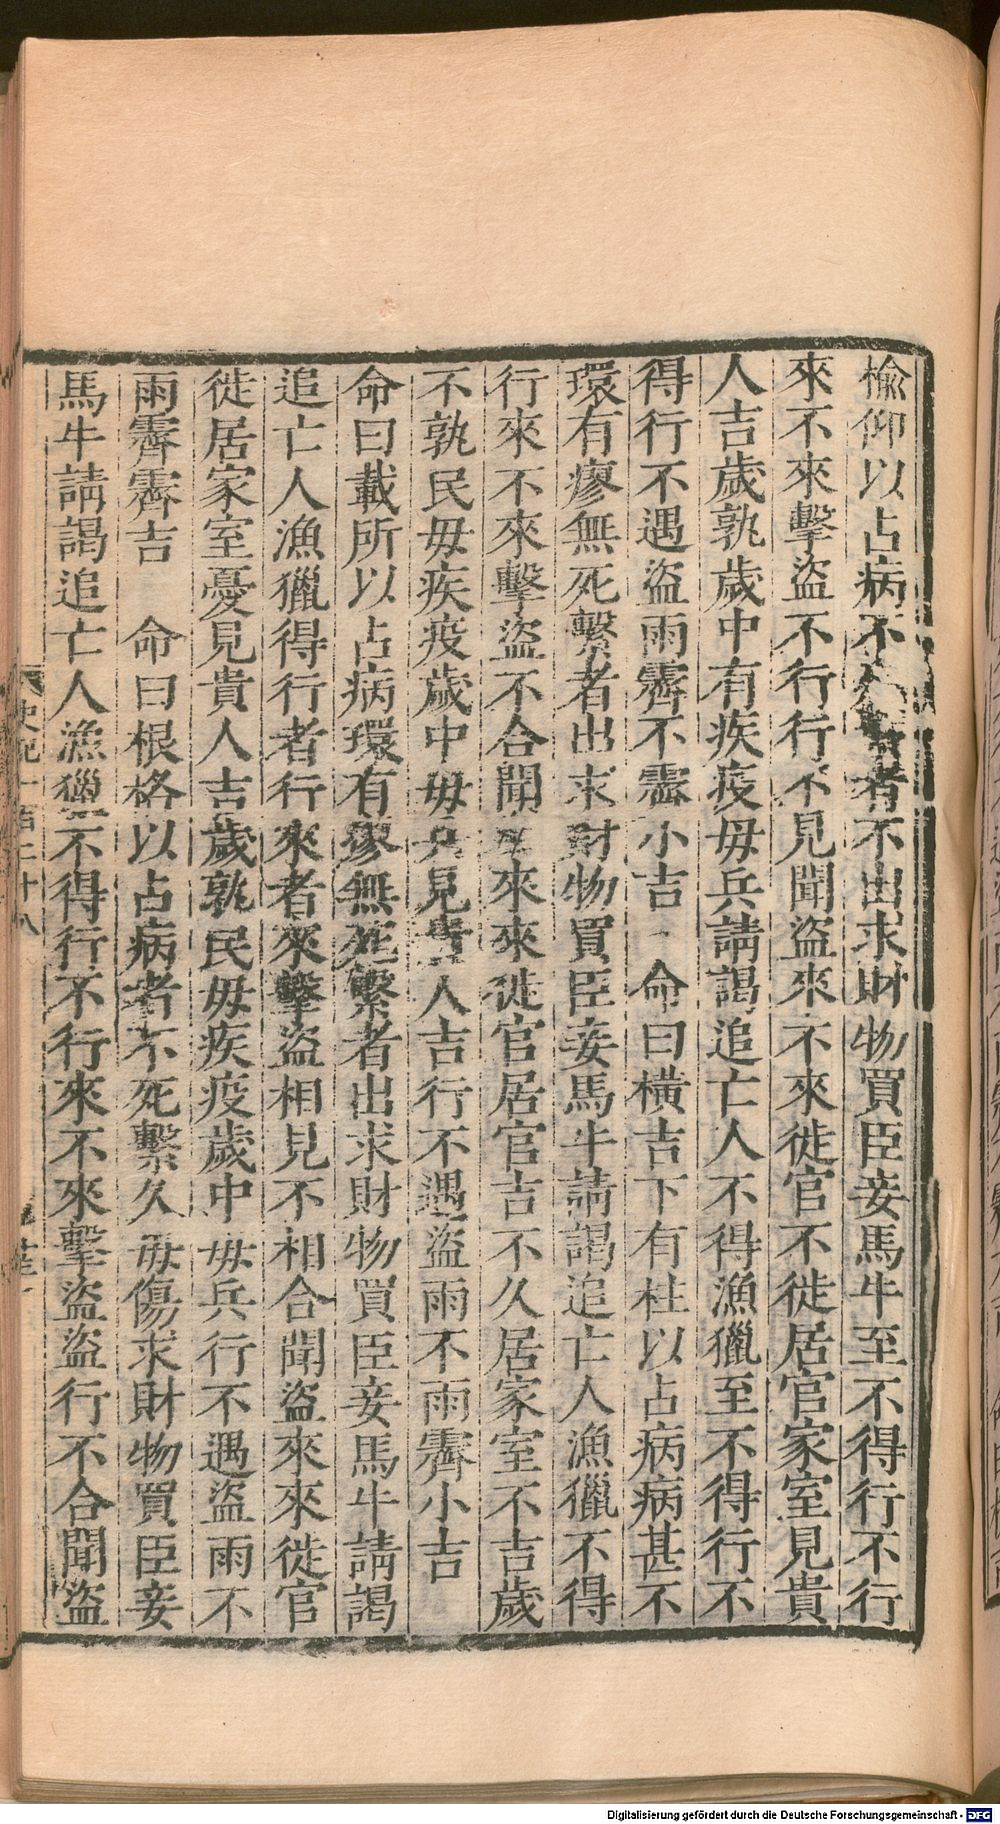 榆仰以占病不者不出求財物買臣妾馬牛至不得行不行
來不來擊盜不行行不見聞盜來不來徙官不徙居官家室見貴
人吉歲孰歲中有疾疫毋兵請謁追亡人不得漁獵至不得行不
得行不遇盜雨霽不霽小吉 命曰橫吉下有柱以占病病甚不
環有瘳無死繫者出求財物買臣妾馬牛請謁追亡人漁獵不得
行來不來擊盜不合聞來來徙官居官吉不久居家室不吉歲
不孰民毋疾疫歲中毋兵見貴人吉行不遇盜雨不雨霽小吉
命曰載所以占病環有瘳無死繫者出求財物買臣妾馬牛請謁
追亡人漁獵得行者行來者來擊盜相見不相合聞盜來來徙官
徙居家室憂見貴人吉歲孰民毋疾疫歲中毋兵行不遇盜雨不
雨霽霽吉 命曰根格以占病者不死繫久毋傷求財物買臣妾
馬牛請謁追亡人漁獵不得行不行來不來擊盜盜行不合聞盜
史記一百二十八